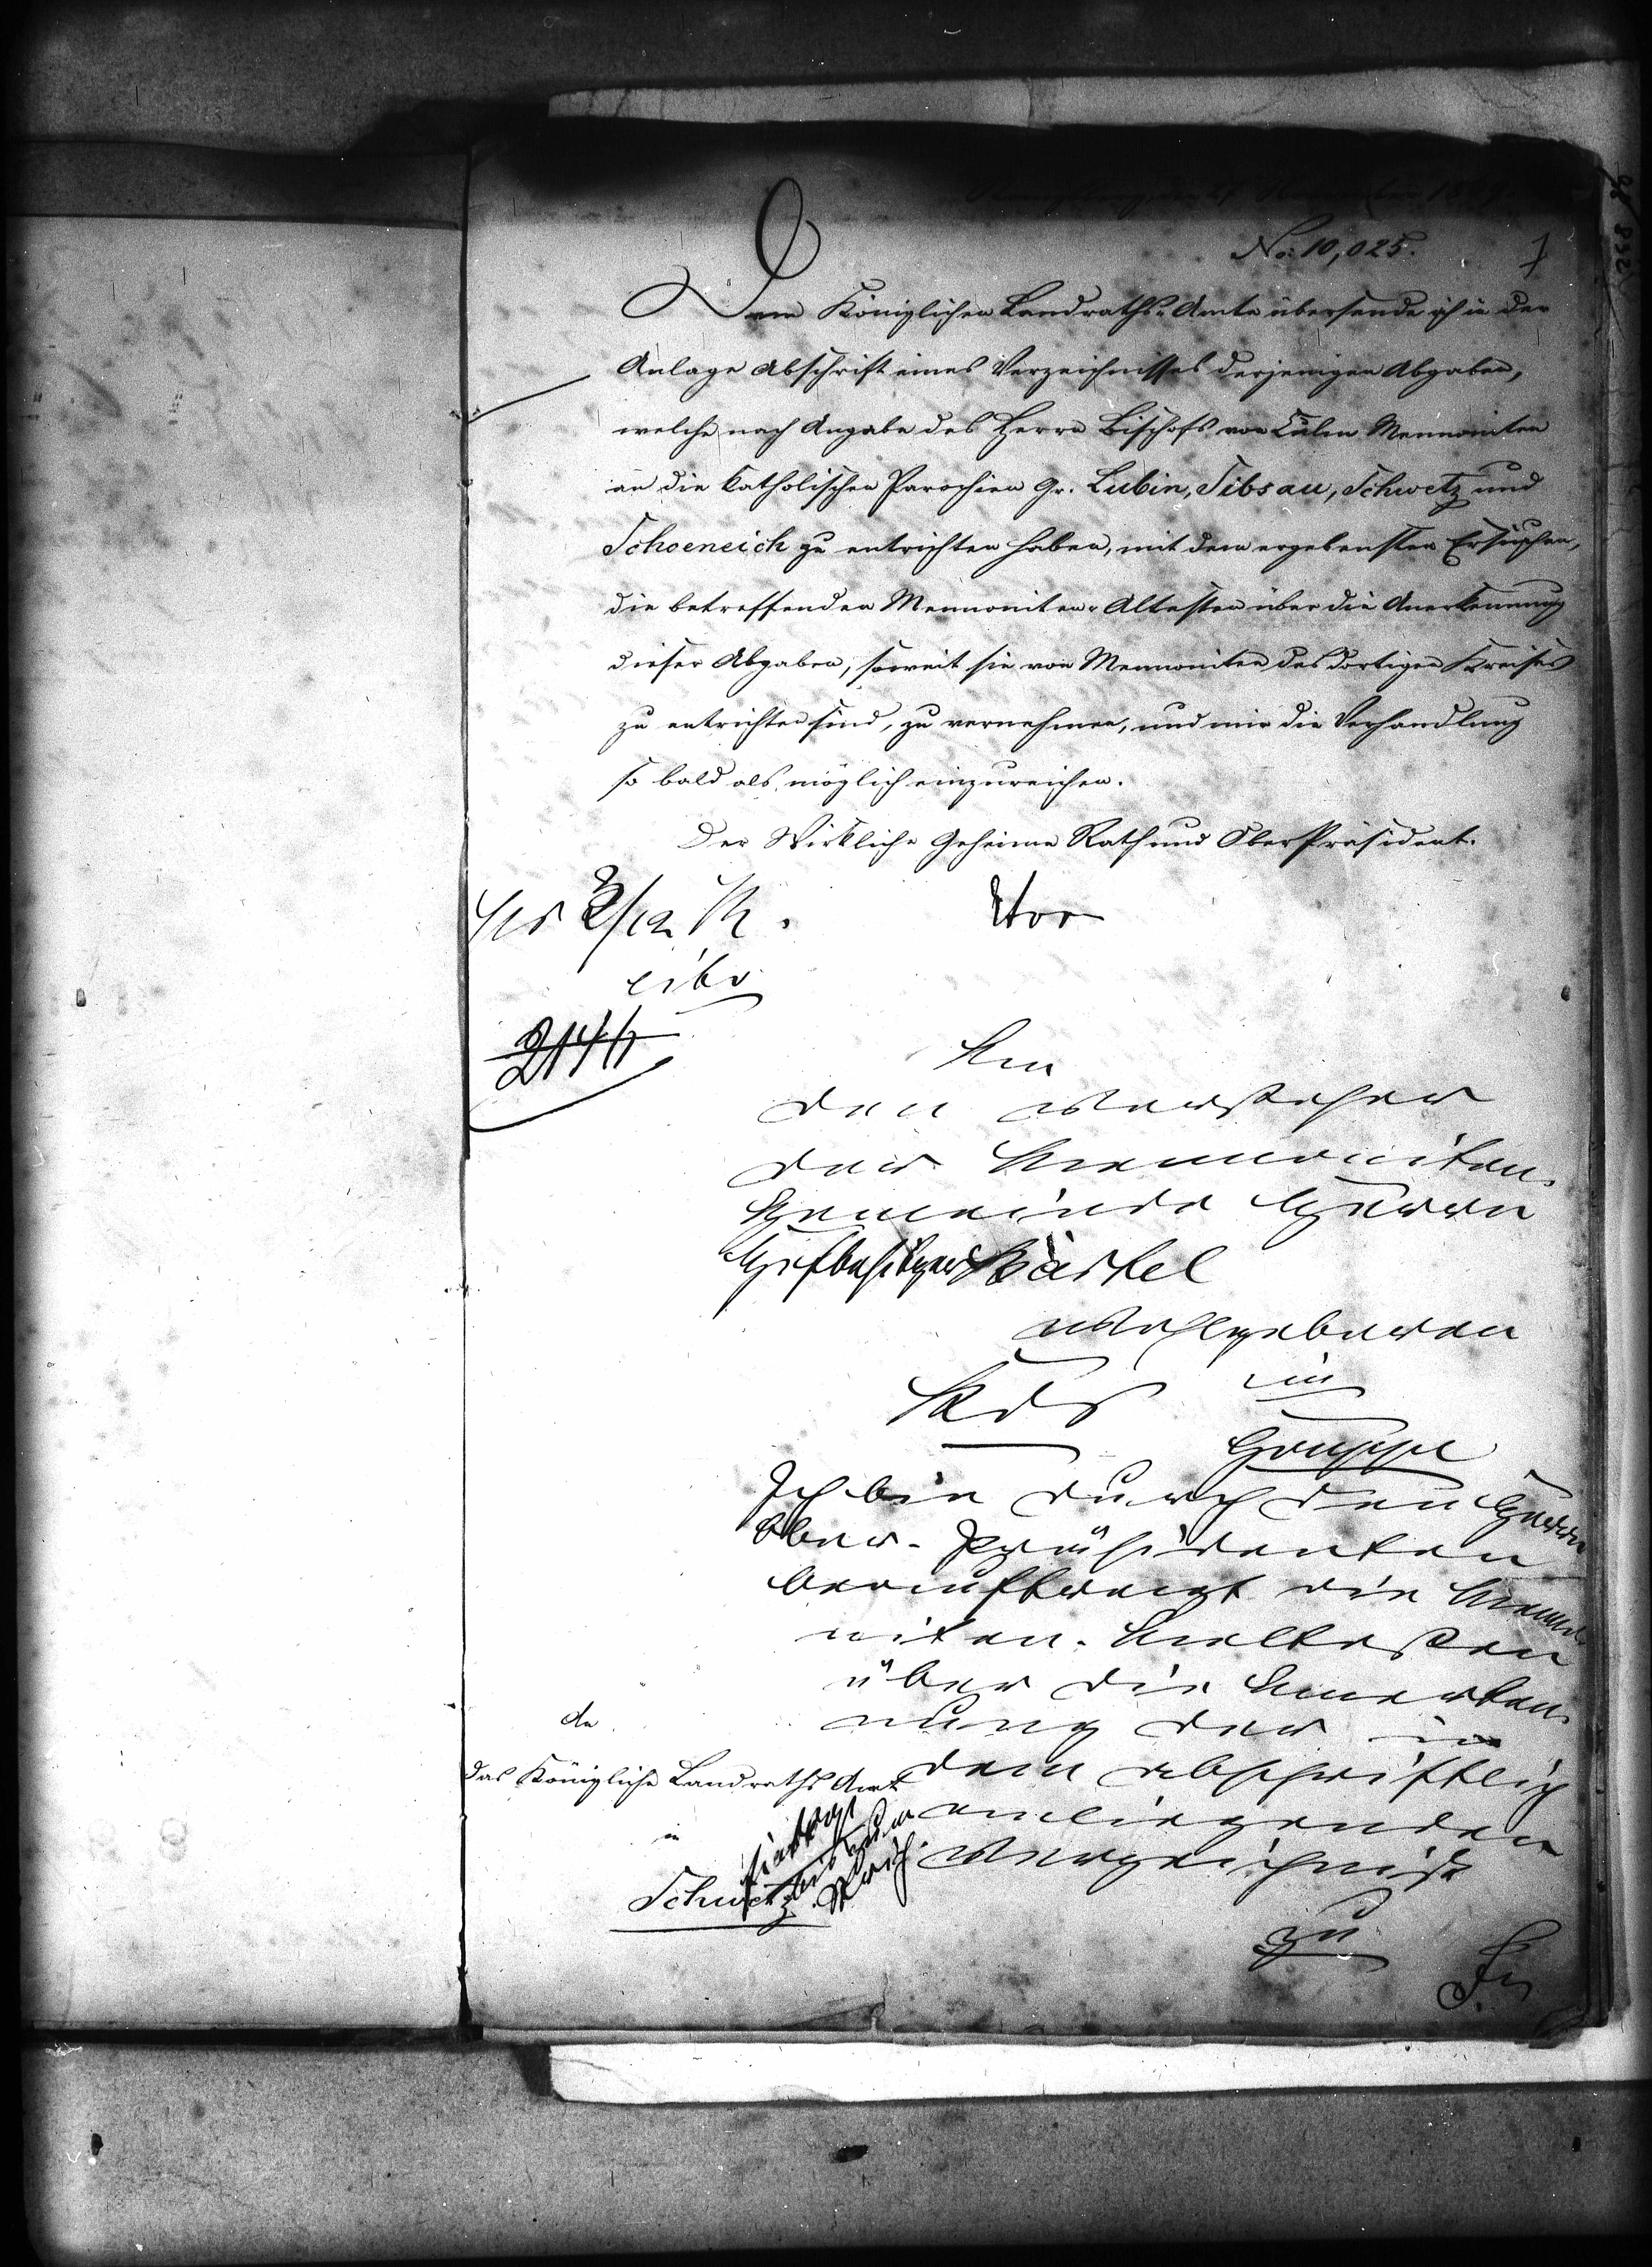 No: 10,025.
1
Dem Königlichen Landraths-Amte übersende ich in der
Anlage Abschrift eines Verzeichnisses derjenigen Abgaben,
welche nach Angabe des Herrn Bischofs von Culm Mennoniten
an die katholischen Parochien Gr. Lubin, Sibsau, Schwetz und
Schoeneich zu entrichten haben, mit dem ergebensten Ersuchen,
die betreffenden Mennoniten-Altesten über die Anerkennung
dieser Abgaben, soweit sie von Mennoniten des dortigen Kreises
zu entrichten sind, zu vernehmen, und mir die Verhandlung
so bald als möglich einzureichen.
Der Wirkliche Geheime Rath und Ober Präsident.
cito
An
den Vorsteher
der Mennoniten
Gemeinde Herrn
Hofbesitzer Bartel
Wohlgeboren
in
Gruppe
Ich bin durch den Herrn
Ober-Präsidenten
beauftragt die Menno-
niten-Aeltesten
über die Anerken-
nung der in
dem abschriftlich
anliegenden
Verzeichniß
zu
An
das Königliche Landraths Amt
in
Schwetz